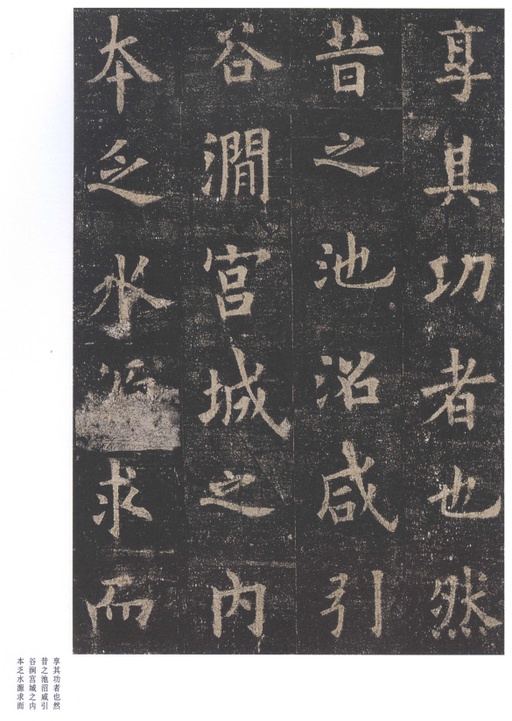 享其功者也然
昔之池沼咸引
谷澗宫城之内
本乏水源求而
享其功者也然
昔之池沼咸引
谷涧宫城之内
本乏水源求而